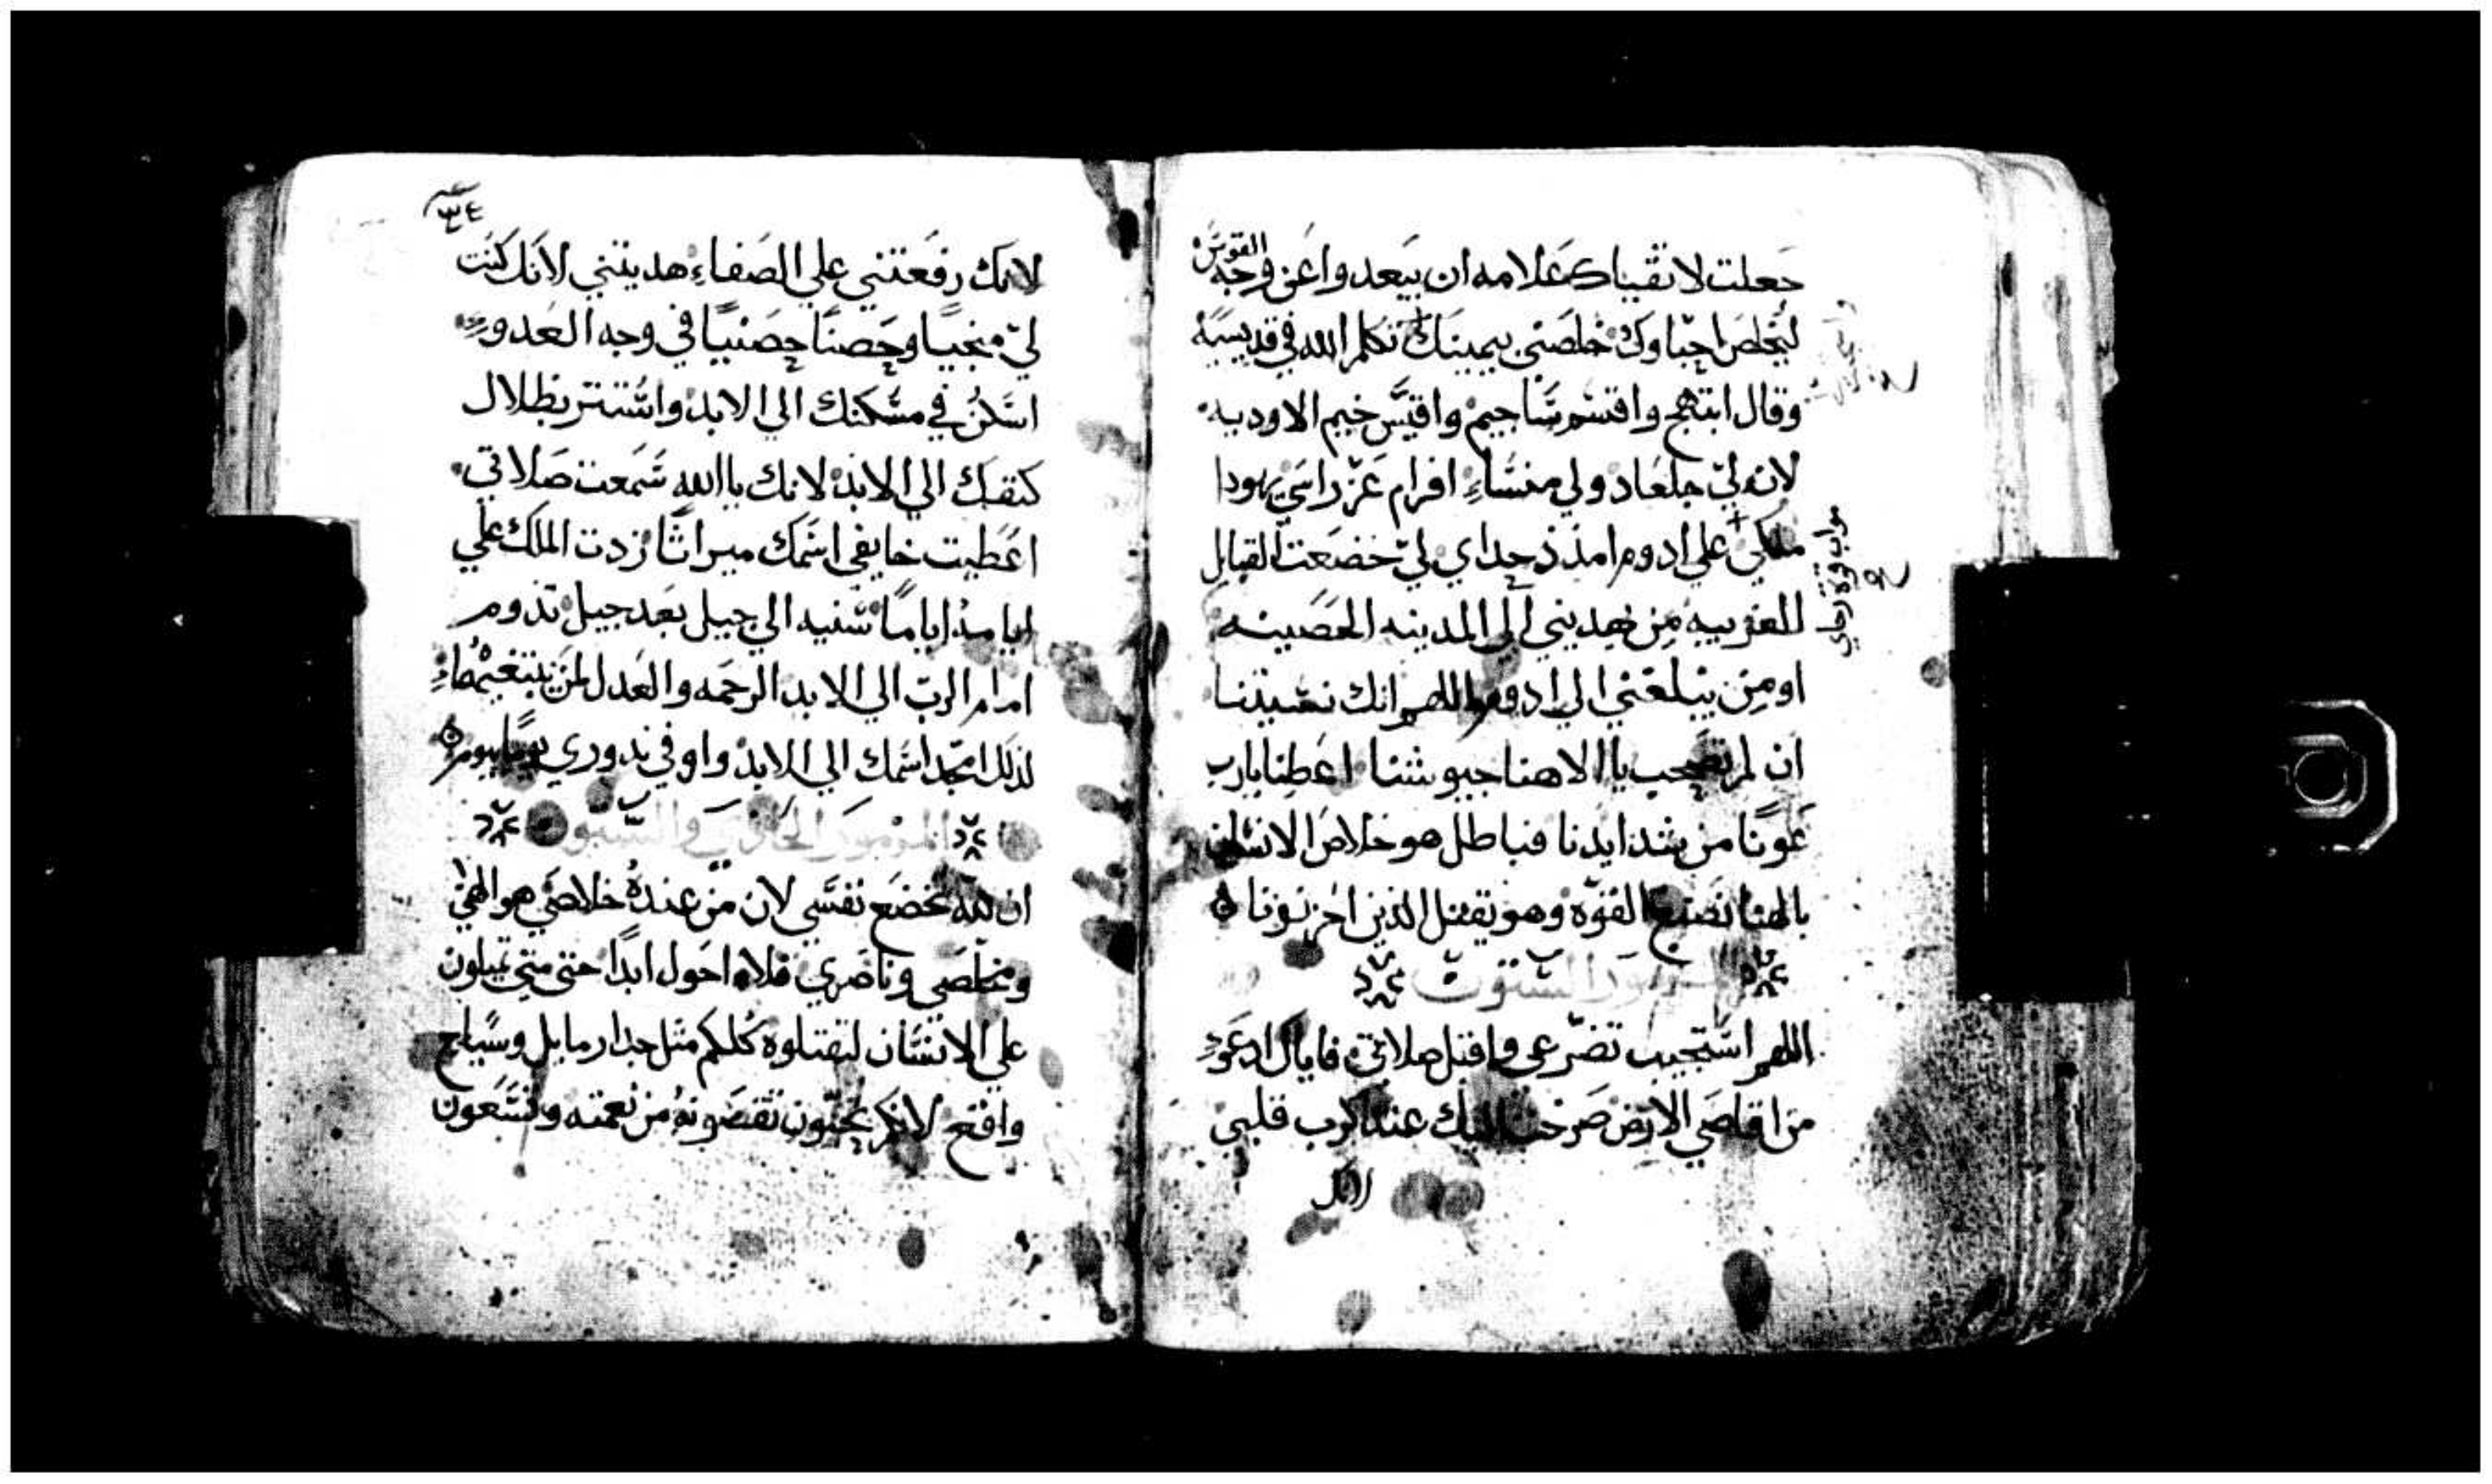 جعلت لاتقياك علامه ان يبعدوا عن وجه القوس
ليخلص احباوك خلصني بيمينك تكلم الله في قديسيه
وقال ابتهج واقتسم ساجيم واقيس خيم الاوديه
لان لي جلعاد ولي منساء افرام عز راسي يهودا
ملكي علي ادوم امدد حداي لي خضعت القبايل
الغريبه من يهديني الي المدينه الحصينه
او من يبلغني الي ادوم اللهم انك نسيتنا
ان لم تصحب ياالاهنا جيوشنا اعطنا يارب
عونا من شدايدنا فباطل هو خلاص الانسان
بالهنا نصنع القوه وهو يقتل الذين احزنونا
المزمور الستون
اللهم استجيب تضرعي واقبل صلاتي فاياك ادعو
من اقاصي الارض صرخت اليك عند كرب قلبي
لانك
مواب قدر رجاي
٣٤
لانك رفعتني علي الصفاء هديتني لانك كنت
لي منجيا وحصنا حصنيا في وجه العدو
اسكن في مسكنك الي الابد واستتر بظلال
كنفك الي الابد لانك ياالله سمعت صلاتي
اعطيت خايفي اسمك ميراثا زدت الملك علي
ايامه اياما سنيه الي جيل بعد جيل تدوم
امام الرب الي الابد الرحمه والعدل لمن يبتغيهماء
لذلك امجد اسمك الي الابد واوفي ندوري يوما بيوم
المزمور الحادي والستون
ان لله تخضع نفسي لان من عنده خلاصي هو الهي
ومخلصي وناصري فلا احول ابدا حتي متي تميلون
علي الانسان لتقتلوه كلكم مثل جدار مايل وسياج
واقع لانكم تحبون تقضونه من نعمته وتسعون